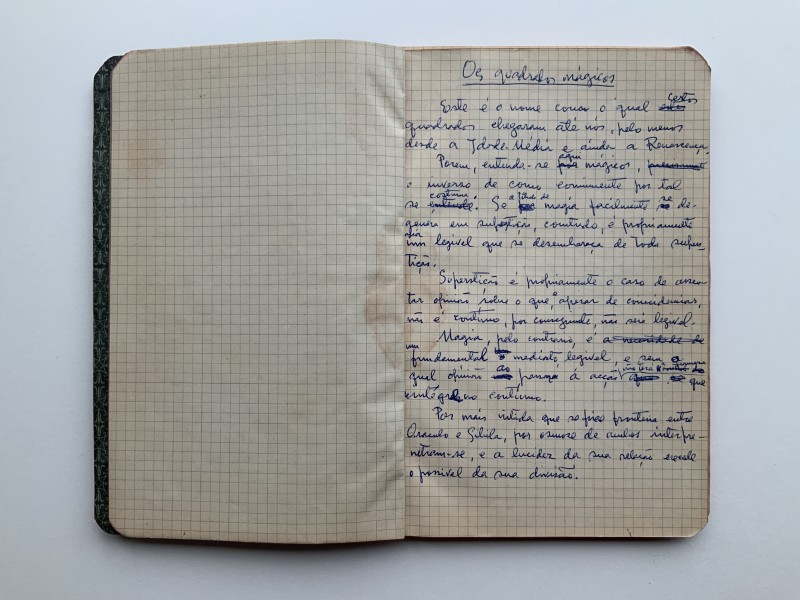 Os quadrados mágicos
Este é o nome com o qual certos
quadrados chegaram até nós, pelo menos
desde a Idade-Média e ainda a Renascença.
Porém, entenda-se aqui mágicos,
o inverso de como comummente por tal
se costuma. Se a ideia de magia facilmente se de-
genera em superstição, contudo, é propriamente
via legível que se desembaraça de toda supers-
tição.
Superstição é propriamente o caso de assen-
tar opinião sobre o que, apesar de coincidências,
não é contínuo, por conseguinte, não seio legível.
Magia, pelo contrário, é a necessidade de
um fundamental mediato legível, e sem
qual opinião ao passar à acção que
contínuo.
Por mais nítida que se faça fronteira entre
Oráculo e Sibila, por osmose de ambos interpe-
netram-se, e a lucidez da sua relação excede
o possível da sua divisão.